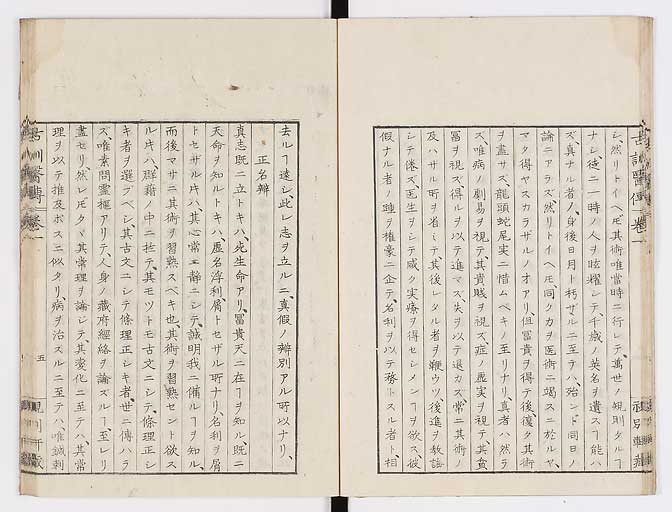 シ、然リトイヘ𪜈其術唯當時ニ行レテ、萬世ノ規則タルヿ
ナシ、徒ニ一時ノ人ヲ眩耀シテ千歳ノ英名ヲ遺スヿ能ハ
ズ、真ナル者ハ、身後日月ト朽ザルニ至テハ、殆ンド同日ノ
論ニアラズ、然リトイヘ𪜈同クカヲ医術ニ竭スニ於ルヤ、
マタ得ヤスカラザルノ才アリ、但冨貴ヲ得テ後、復タ其術
ヲ盡サズ、龍頭蛇尾実ニ惜ムベキノ至リナリ、真者ハ然ラ
ズ、唯病ノ劇易ヲ視テ、其貴賤ヲ視ズ、症ノ虚実ヲ視テ、其貧
冨ヲ視ズ、得ルヲ以テ進マズ、失ヲ以テ退カズ、常ニ其術ノ
及ハサル所ヲ省ミテ、其後レタル者ヲ鞭ウツ、後進ヲ教誨
シテ倦ズ、医生ヲシテ咸ク実療ヲ得セシメンヿヲ欲ス、彼
假ナル者ノ踵ヲ權豪ニ企テ、名利ヲ以テ務トスル者ト、相
去ルヿ遠シ、此レ志ヲ立ルニ、真假ノ辨別アル所以ナリ、
正名辨
真志既ニ立ルトキハ、先生命アリ、冨貴天ニ在ルヿヲ知ル、既ニ
天命ヲ知ルトキハ、虚名浮利、屑トセザル所ナリ、名利ヲ屑
トセザル𪜈ハ、其心常ニ静ニシテ、誠明我ニ備ルヿヲ知ル、
而後マサニ其術ヲ習熟スベキ也、其術ヲ習熟セント欲ス
ル片ハ、群籍ノ中ニ於テ、其モツトモ古文ニシテ、條理正シ
キ者ヲ選ブベシ、其古文ニシテ條理正シキ者、世ニ傳ハラ
ズ、唯素問靈樞アリテ、人身ノ藏府經絡ヲ論ズルヿ至レリ
盡セリ、然レ𪜈タヾ其常理ヲ論シテ、其変化ニ至テハ、其常
理ヲ以テ推及ボスニ似タリ、病ヲ治スルニ至テハ、唯鍼刺
古訓醫傳 卷一
五